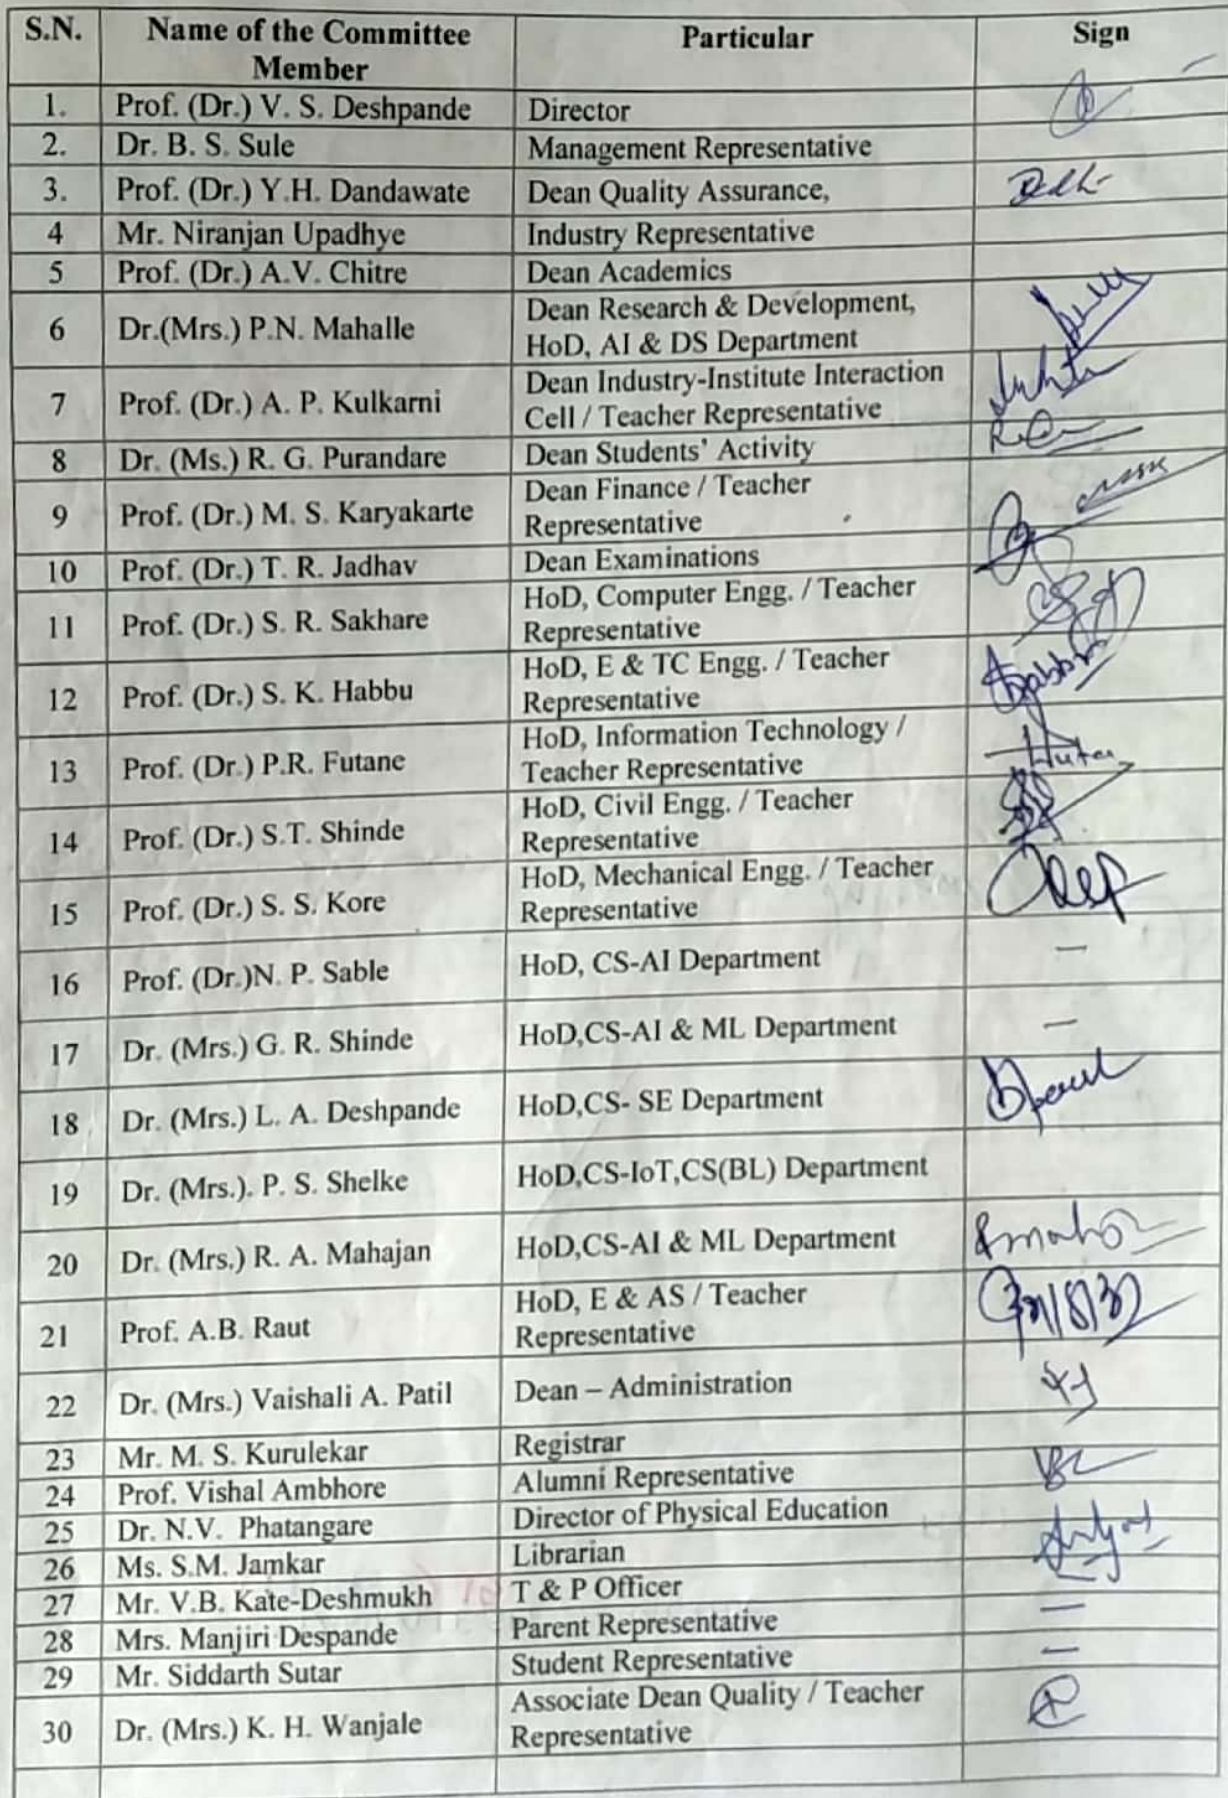 S.N. Name of the Committee Member Particular Sign
1. Prof. (Dr.) V. S. Deshpande Director
2. Dr. B. S. Sule Management Representative
3. Prof. (Dr.) Y.H. Dandawate Dean Quality Assurance,
4 Mr. Niranjan Upadhye Industry Representative
5 Prof. (Dr.) A.V. Chitre Dean Academics
6 Dr.(Mrs.) P.N. Mahalle Dean Research & Development,
HoD, AI & DS Department
7 Prof. (Dr.) A. P. Kulkarni Dean Industry-Institute Interaction
Cell / Teacher Representative
8 Dr. (Ms.) R. G. Purandare Dean Students' Activity
9 Prof. (Dr.) M. S. Karyakarte Dean Finance / Teacher
Representative
10 Prof. (Dr.) T. R. Jadhav Dean Examinations
11 Prof. (Dr.) S. R. Sakhare HoD, Computer Engg. / Teacher
Representative
12 Prof. (Dr.) S. K. Habbu HoD, E & TC Engg. / Teacher
Representative
13 Prof. (Dr.) P.R. Futane HoD, Information Technology /
Teacher Representative
14 Prof. (Dr.) S.T. Shinde HoD, Civil Engg. / Teacher
Representative
15 Prof. (Dr.) S. S. Kore HoD, Mechanical Engg. / Teacher
Representative
16 Prof. (Dr.)N. P. Sable HoD, CS-AI Department —
17 Dr. (Mrs.) G. R. Shinde HoD,CS-AI & ML Department —
18 Dr. (Mrs.) L. A. Deshpande HoD,CS- SE Department
19 Dr. (Mrs.). P. S. Shelke HoD,CS-IoT,CS(BL) Department
20 Dr. (Mrs.) R. A. Mahajan HoD,CS-AI & ML Department
21 Prof. A.B. Raut HoD, E & AS / Teacher
Representative
22 Dr. (Mrs.) Vaishali A. Patil Dean – Administration
23 Mr. M. S. Kurulekar Registrar
24 Prof. Vishal Ambhore Alumni Representative
25 Dr. N.V. Phatangare Director of Physical Education
26 Ms. S.M. Jamkar Librarian
27 Mr. V.B. Kate-Deshmukh T & P Officer
28 Mrs. Manjiri Despande Parent Representative —
29 Mr. Siddarth Sutar Student Representative —
30 Dr. (Mrs.) K. H. Wanjale Associate Dean Quality / Teacher
Representative